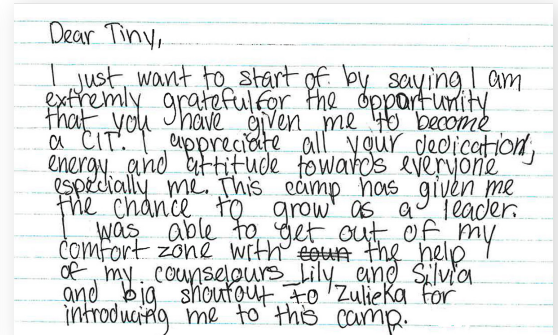 Dear Tiny,
I just want to start of by saying I am
extremly grateful for the opportunity
that you have given me to become
a CIT. I appreciate all your dedication,
energy and attitude towards everyone
especially me. This camp has given me
the chance to grow as a leader.
I was able to get out of my
comfort zone with coun the help
of my counselours Lily and Silvia
and big shoutout to Zulieka for
introducing me to this camp.